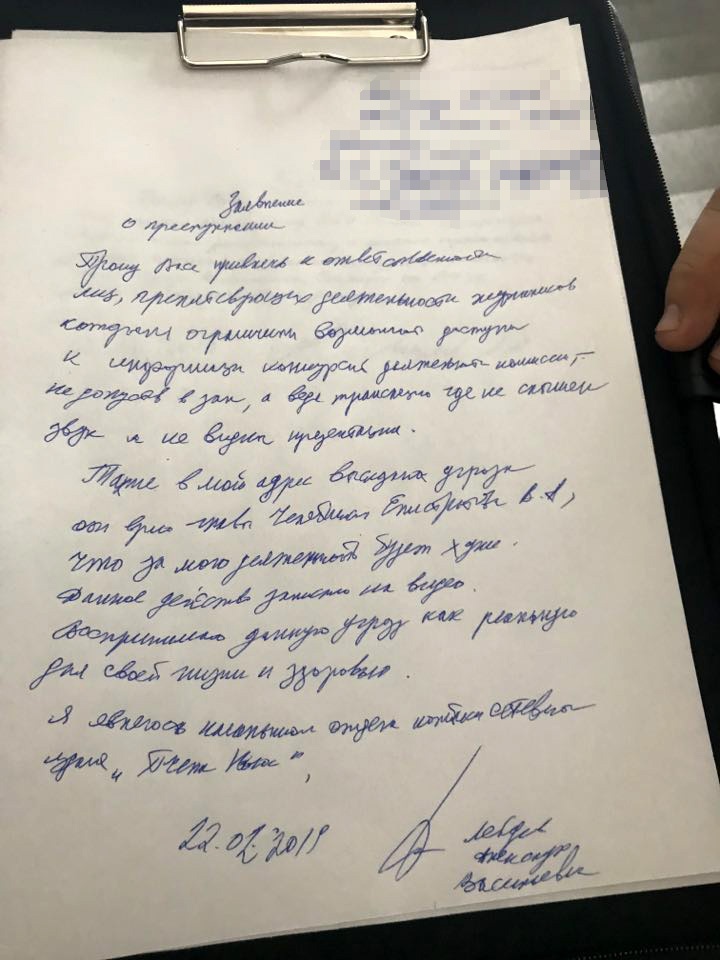 Заявление
о преступлении
Прошу Вас привлечь к ответственности
лиц, препятсвующих деятельности журналистов
которые ограничили возможность доступа
к информации конкурсной деятельности комиссии,
не допустив в зал, а ведя трансляцию где не слышен
звук и не видны презентации.
Также в мой адрес высказана угроза
от врио главы Челябинска Елистратова В.А,
что за мою деятельность будет хуже.
Данное действо записано на видео.
Воспринимаю данную угрозу как реальную
для своей жизни и здоровью.
Я являюсь начальником отдела политики сетевого
издания „ Нюс",
22.02.2019
Александр
Васильевич